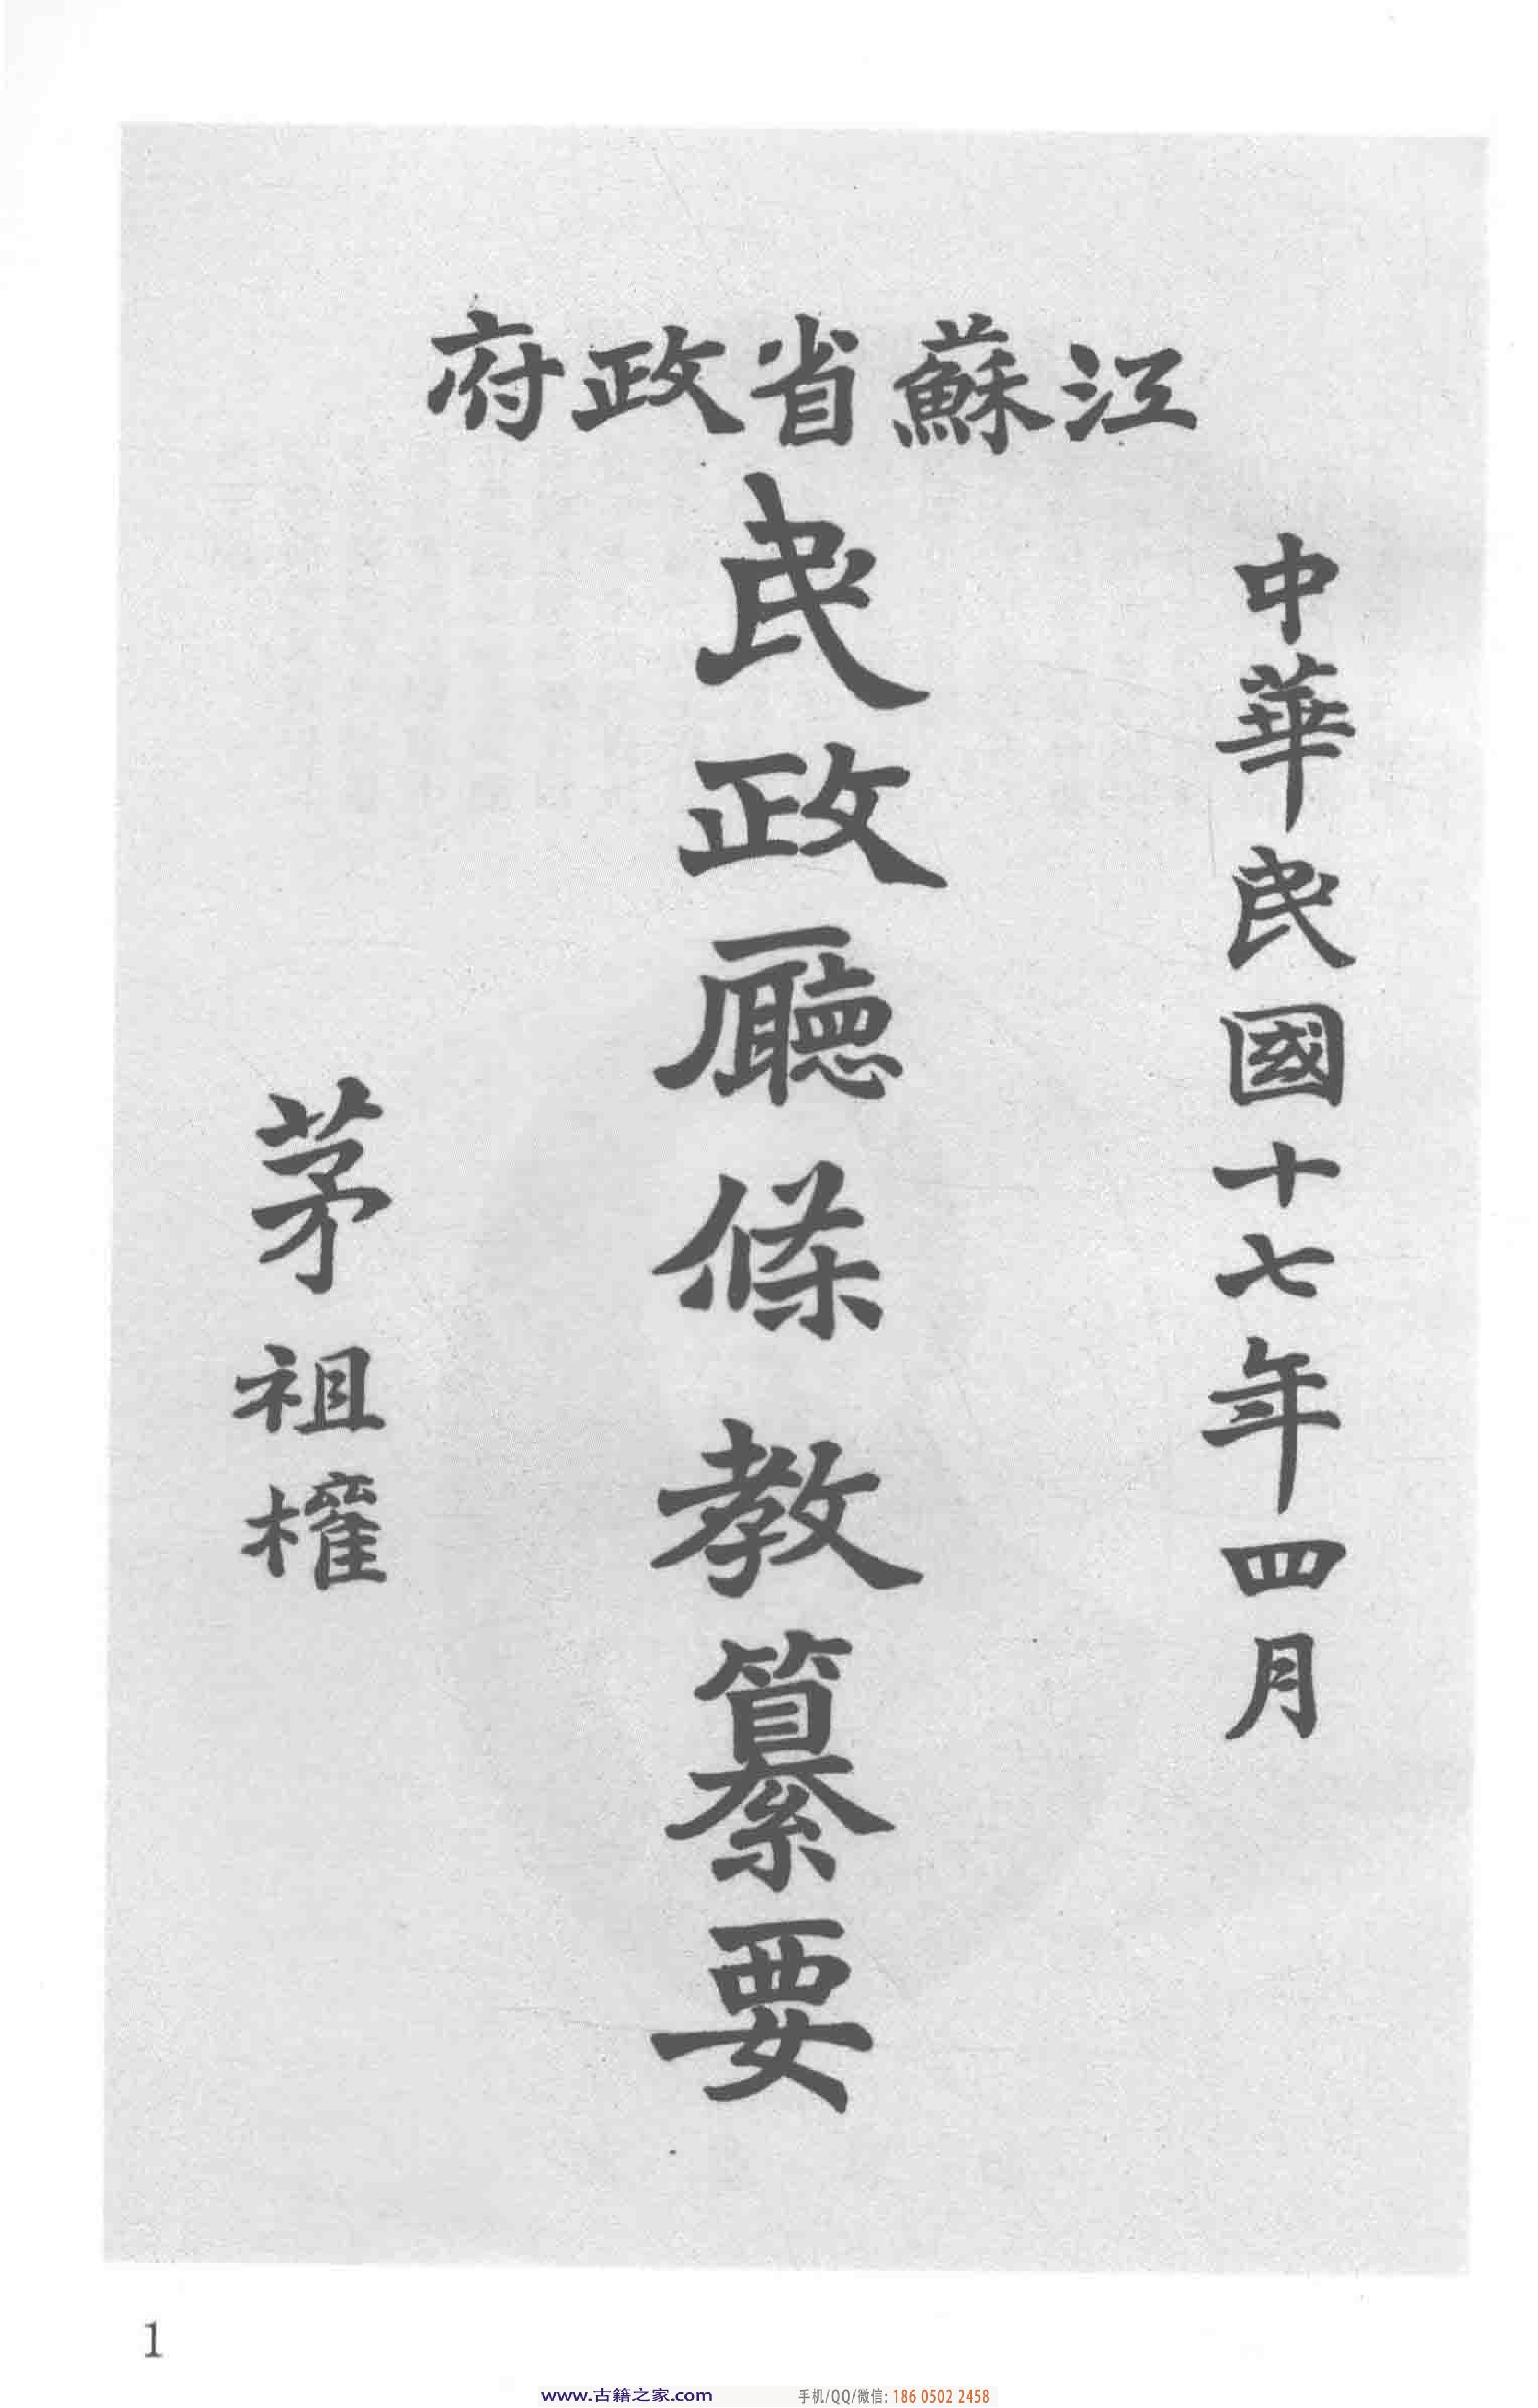 江蘇省政府
中華民國十七年四月
民政廳條教纂要
茅祖權
1
www.古籍之家.com
手机/QQ/微信: 186 0502 2458